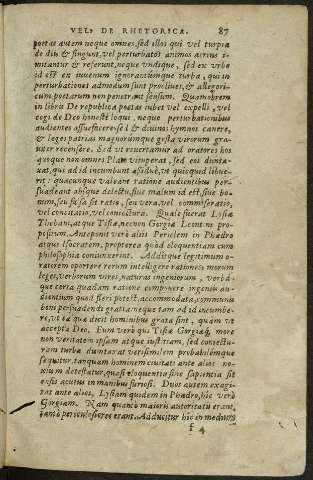 VEL, DE RHETORICA. 87
poetas autem neque omnes, sed illos qui vel turpia
de diis & fingunt, vel perturbatos animos acrius i-
mitantur & referunt, neque undique, sed ex urbe
id est ex iuvenum ignorantiumque turba, qui in
perturbationes admodum sunt proclives, & allegori-
cum poetarum non penetrant sensum. Quamobrem
in libris De republica poetas iubet vel expelli, vel
cogi de Deo honeste loqui, neque perturbationibus
audientes assuefacere: sed & divinos hymnos canere,
& leges patrias magnorumque gesta virorum gra-
viter recensere. Sed ut revertamur ad oratores hos
quoque non omnes Plato vituperat, sed eos dunta-
xat, qui ad id incumbunt assidue, ut quicquid libue-
rit: quacunque valeant ratione audientibus per-
suadeant absque delectu, sive malum id est, sive bo-
num, seu falsa sit ratio, seu vera, vel commiseratio,
vel concitatio, vel coniectura. Quale fuerat Lysiæ
Thebani, atque Tisiæ, necnon Gorgiæ Leontini pro-
positum. Anteponit verò aliis Periclem in Phædro
atque Isocratem, propterea quòd eloquentiam cum
philosophia coniunxerint. Additque legitimum o-
ratorem oportere rerum intelligere rationes morum
leges, verborum vires, naturas ingeniorum, verbá-
que certa quadam ratione componere ingeniis au-
dientium quoad fieri potest, accommodata, communis
boni persuadendi gratia, neque tam ad id incumbe-
re, ut ea quæ dicit hominibus grata sint, quàm ut
accepta Deo. Eum verò qui Tisiæ Gorgiæque more
non veritatem ipsam atque iustitiam, sed coniectu-
ram turbæ duntaxat verisimilem probabilémque
sequitur, tanquam hominem civitati ante alios no-
xium detestatur, quasi eloquentia sine sapientia sit
ensis acutus in manibus furiosi. Duos autem exagi-
tat ante alios, Lysiam quidem in Phædro, hic verò
Gorgiam. Nam quantò maioris autoritatis erant,
tantò periculosiores erant. Adducitur hic in medium
f 4